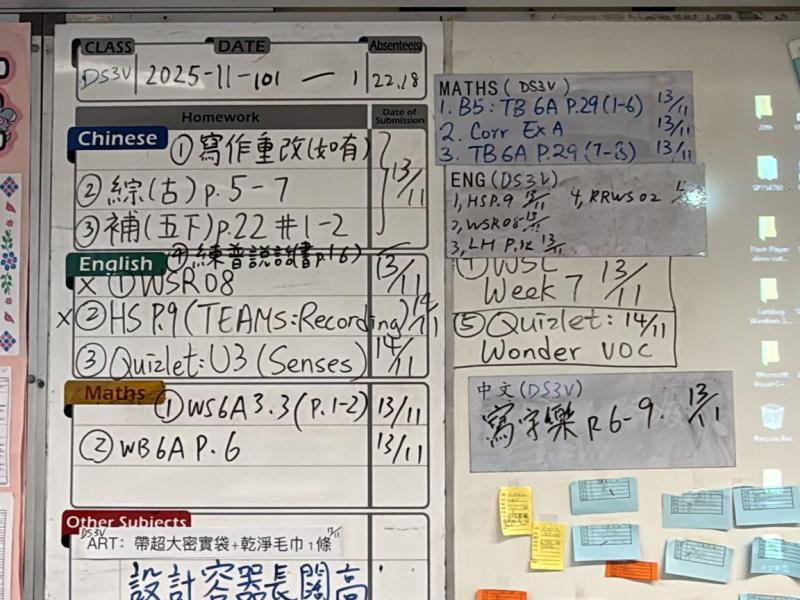 CLASS DATE Absentee(s)
DS3V 2025-11-101 — 1 22,18
Homework Date of Submission
Chinese ① 寫作重改(如有) 13/11
② 綜(古) p. 5-7
③ 補(五下) p.22 #1-2
④ 練普說話書p.16)
English × ① WSR 08 13/11
× ② HS P.9 (TEAMS: Recording) 14/11
③ Quizlet: U3 (Senses) 14/11
Maths ① WS6A 3.3 (P.1-2) 13/11
② WB 6A P. 6 13/11
Other Subjects
DS3V
ART：帶超大密實袋+乾淨毛巾1條
設計容器長闊高
MATHS (DS3V)
1. B5: TB 6A P.29 (1-6) 13/11
2. Corr Ex A 13/11
3. TB 6A P.29 (7-8) 13/11
ENG (DS3V)
1, HSP.9 13/11 4, RRWS 02
2, WSR08 13/11
3, LH P.12 13/11
WSL
Week 7 13/11
⑤ Quizlet: 14/11
Wonder VOC
中文 (DS3V)
寫字樂 P.6-9. 13/11
20th
SP154760
Flash Player
Recycle Bin